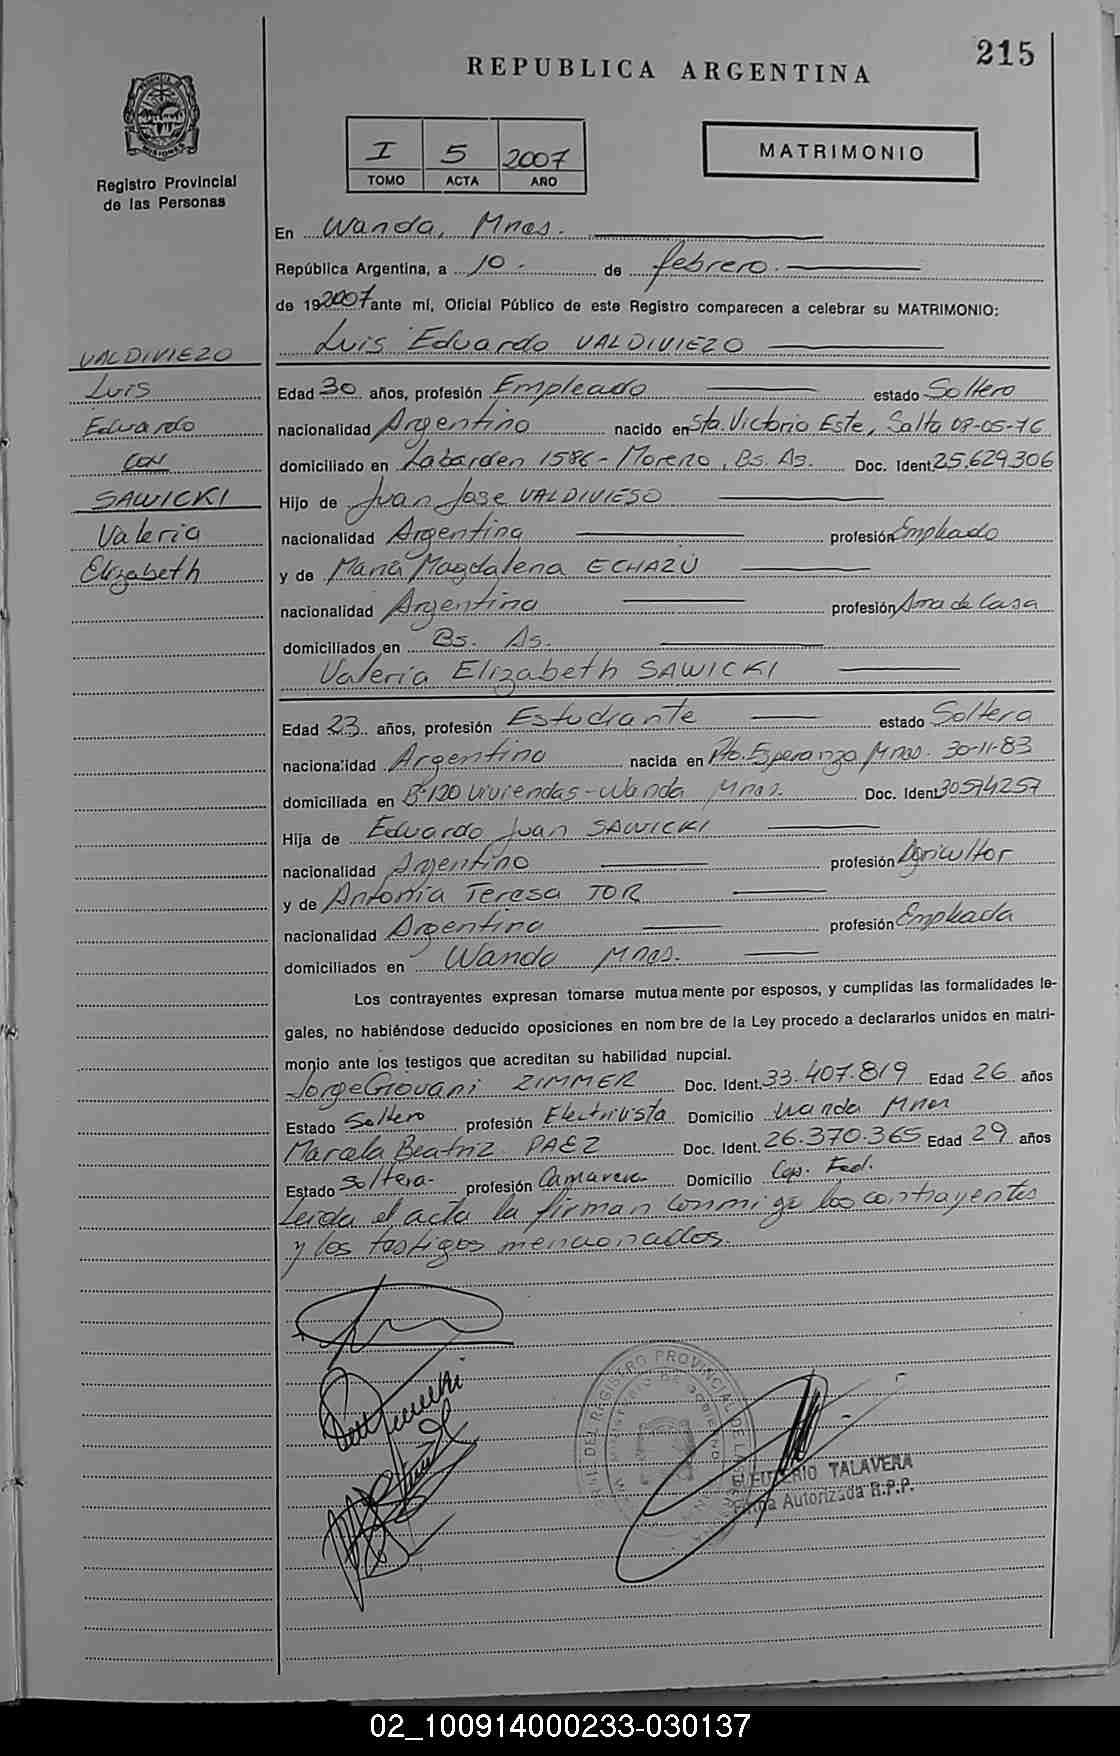 215
REPUBLICA ARGENTINA
I 5 2007
TOMO ACTA AÑO
MATRIMONIO
MISIONES
Registro Provincial
de las Personas
En Wanda, Mnes.
República Argentina, a 10. de febrero.
de 192007 ante mí, Oficial Público de este Registro comparecen a celebrar su MATRIMONIO:
Luis Eduardo VALDIVIEZO
VALDIVIEZO
Luis
Eduardo
CON
SAWICKI
Valeria
Elizabeth
Edad 30 años, profesión Empleado estado Soltero
nacionalidad Argentino nacido en Sta. Victoria Este, Salta 08-05-76
domiciliado en Labarden 1586 - Moreno, Bs. As. Doc. Ident 25.629.306
Hijo de Juan Jose VALDIVIESO
nacionalidad Argentina profesión Empleado
y de María Magdalena ECHAZÚ
nacionalidad Argentina profesión Ama de Casa
domiciliados en Bs. As.
Valeria Elizabeth SAWICKI
Edad 23 años, profesión Estudiante estado Soltera
nacionalidad Argentina nacida en Pto. Esperanza Mnes. 30-11-83
domiciliada en Bº 120 viviendas - Wanda Mnes. Doc. Ident 30574257
Hija de Eduardo Juan SAWICKI
nacionalidad Argentino profesión Agricultor
y de Antonia Teresa TOR
nacionalidad Argentina profesión Empleada
domiciliados en Wanda Mnes.
Los contrayentes expresan tomarse mutua mente por esposos, y cumplidas las formalidades le-
gales, no habiéndose deducido oposiciones en nom bre de la Ley procedo a declararlos unidos en matri-
monio ante los testigos que acreditan su habilidad nupcial.
Jorge Giovani ZIMMER Doc. Ident. 33.407.819 Edad 26 años
Estado Soltero profesión Electricista Domicilio Wanda Mnes
Marcela Beatriz PAEZ Doc. Ident. 26.370.365 Edad 29 años
Estado Soltera- profesión Camarera Domicilio Cap. Fed.
Leída el acta la firman conmigo los contrayentes
y los testigos mencionados.
ELEUTERIO TALAVERA
Firma Autorizada R.P.P.
02_100914000233-030137